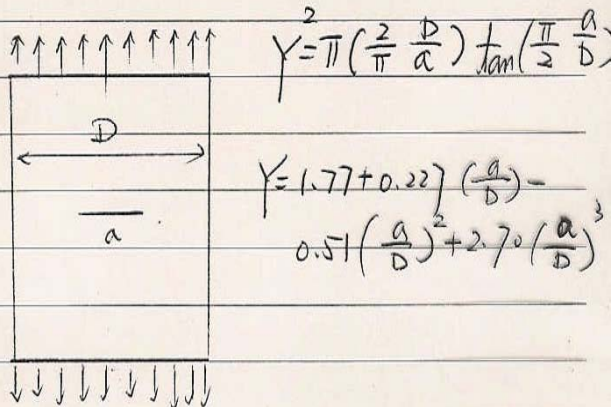 Y² = π(2/π D/a) tan(π/2 a/D)
D
Y = 1.77 + 0.227 (a/D) −
0.51 (a/D)² + 2.70 (a/D)³
a